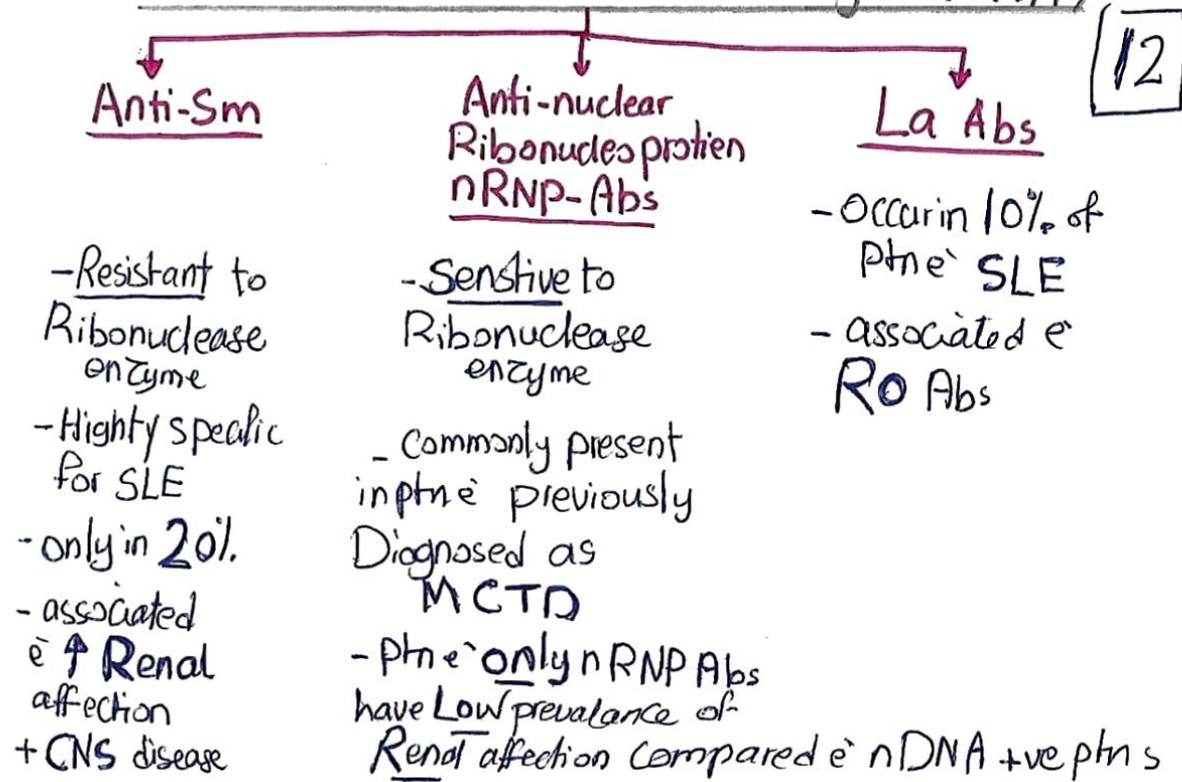 12
Anti-Sm
-Resistant to
Ribonuclease
enzyme
-Highly specific
for SLE
-only in 20%.
- associated
è ↑ Renal
affection
+ CNS disease
Anti-nuclear
Ribonucleoprotien
nRNP-Abs
-Senstive to
Ribonuclease
enzyme
- Commonly present
in ptn è previously
Diagnosed as
MCTD
- ptn è only nRNP Abs
have Low prevalance of
Renal affection compared è nDNA +ve ptns
La Abs
- Occur in 10% of
Ptn è SLE
- associated è
RO Abs